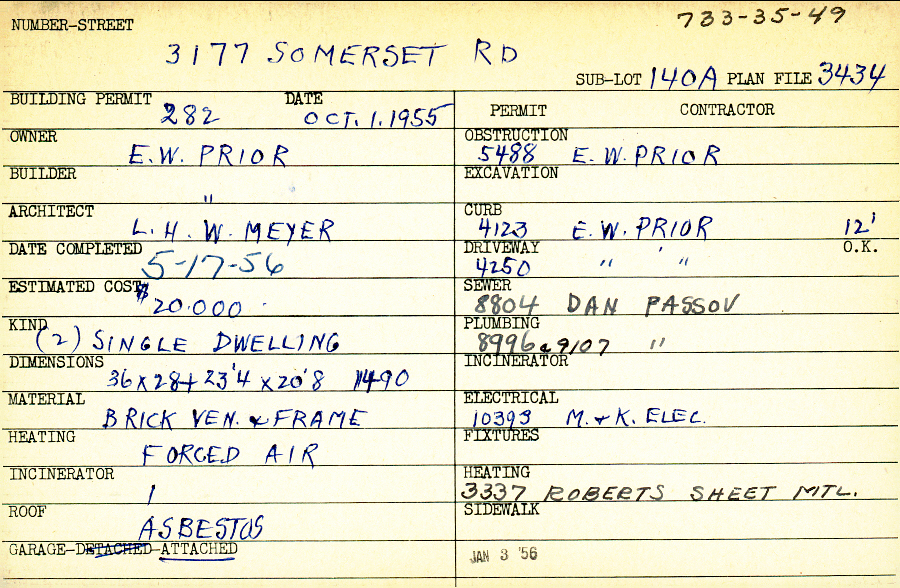 733-35-49
NUMBER-STREET
3177 SOMERSET RD
SUB-LOT 140A PLAN FILE 3434
BUILDING PERMIT DATE
282 OCT. 1. 1955
OWNER
E.W. PRIOR
BUILDER
"
ARCHITECT
L. H. W. MEYER
DATE COMPLETED
5-17-56
ESTIMATED COST
$20.000
KIND
(2) SINGLE DWELLING
DIMENSIONS
36 x 28 + 23'4 x 20'8 1490
MATERIAL
BRICK VEN. & FRAME
HEATING
FORCED AIR
INCINERATOR
1
ROOF
ASBESTOS
GARAGE-DETACHED-ATTACHED
PERMIT CONTRACTOR
OBSTRUCTION
5488 E.W. PRIOR
EXCAVATION
CURB
4123 E.W. PRIOR 12'
DRIVEWAY O.K.
4250 " "
SEWER
8804 DAN PASSOV
PLUMBING
8996 & 9107 "
INCINERATOR
ELECTRICAL
10393 M. & K. ELEC.
FIXTURES
HEATING
3337 ROBERTS SHEET MTL.
SIDEWALK
JAN 3 '56